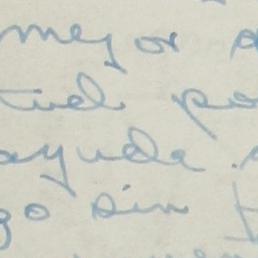 mejor
tud po
ayuda.
go sin